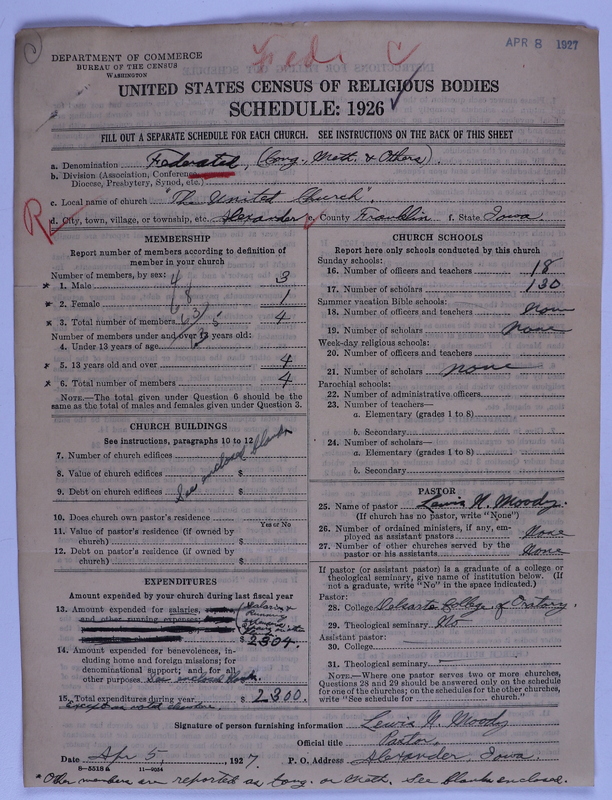 APR 8 1927
Fed.
DEPARTMENT OF COMMERCE
BUREAU OF THE CENSUS
WASHINGTON
UNITED STATES CENSUS OF RELIGIOUS BODIES
SCHEDULE: 1926
FILL OUT A SEPARATE SCHEDULE FOR EACH CHURCH. SEE INSTRUCTIONS ON THE BACK OF THIS SHEET
a. Denomination Federated, (Cong., Meth. & Others).
b. Division (Association, Conference,
Diocese, Presbytery, Synod, etc.)
c. Local name of church "The United Church"
R
d. City, town, village, or township, etc. Alexander e. County Franklin f. State Iowa
MEMBERSHIP
Report number of members according to definition of
member in your church
Number of members, by sex:
* 1. Male 3
* 2. Female 1
* 3. Total number of members 4
Number of members under and over 13 years old:
4. Under 13 years of age
* 5. 13 years old and over 4
* 6. Total number of members 4
NOTE.—The total given under Question 6 should be
same as the total of males and females given under Question 3.
CHURCH BUILDINGS
See instructions, paragraphs 10 to 12
7. Number of church edifices
8. Value of church edifices $
9. Debt on church edifices $
See enclosed blanks
10. Does church own pastor's residence
Yes or No
11. Value of pastor's residence (if owned by
church) $
12. Debt on pastor's residence (if owned by
church) $
EXPENDITURES
Amount expended by your church during last fiscal year
13. Amount expended for salaries,
and other running expenses;
Salaries &
$ 2304.
14. Amount expended for benevolences, including
home and foreign missions; for
denominational support; and for all
other purposes. See enclosed blanks. $
15. Total expenditures during year $ 2300.
Signature of person furnishing information Lewis N. Moody
Official title Pastor,
Date Apr 5, 1927. P. O. Address Alexander, Iowa.
8—5518a 11—9034
* Other members are reported as Cong. or Meth. See blanks enclosed.
CHURCH SCHOOLS
Report here only schools conducted by this church
Sunday schools:
16. Number of officers and teachers 18
17. Number of scholars 130
Summer vacation Bible schools:
18. Number of officers and teachers None
19. Number of scholars None
Week-day religious schools:
20. Number of officers and teachers
21. Number of scholars None
Parochial schools:
22. Number of administrative officers
23. Number of teachers—
a. Elementary (grades 1 to 8)
b. Secondary
24. Number of scholars—
a. Elementary (grades 1 to 8)
b. Secondary
PASTOR
25. Name of pastor Lewis N. Moody.
(If church has no pastor, write "None")
26. Number of ordained ministers, if any, employed
as assistant pastors None
27. Number of other churches served by the
pastor or his assistants None
If pastor (or assistant pastor) is a graduate of a college or
theological seminary, give name of institution below. (If
not a graduate, write "No" in the space indicated.)
Pastor:
28. College Delsarte College of Oratory.
29. Theological seminary No
Assistant pastor:
30. College
31. Theological seminary
NOTE.—Where one pastor serves two or more churches,
Questions 28 and 29 should be answered only on the schedule
for one of the churches; on the schedules for the other churches,
write "See schedule for church."